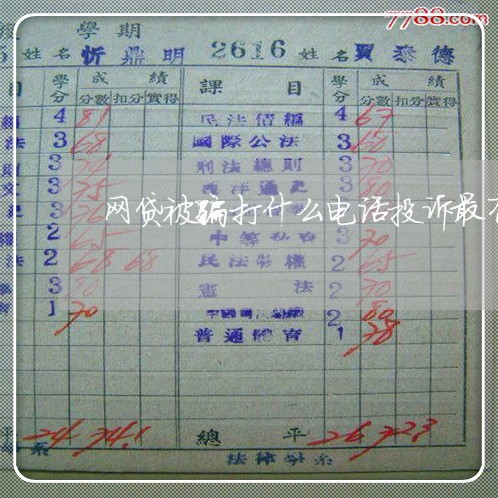 7788.com
學期
姓名 忻鼎明 2616 姓名 賈泰德
目 學分 成績 課目 學分 成績
分數 扣分 實得 分數 扣分 實得
4 81 民法債編 4 67
法 3 68 國際公法 3 60
3 刑法總則 3 70
3 75 西洋通史 3 80
网贷被骗打什么电话投诉最
2 65 3 70
法 2 68 68 民法物權 2 65
3 80 憲法 2 70
1 70 2 80
普通體育 1 78
平 24 74.1 總平 26 72.3
系 法律學系